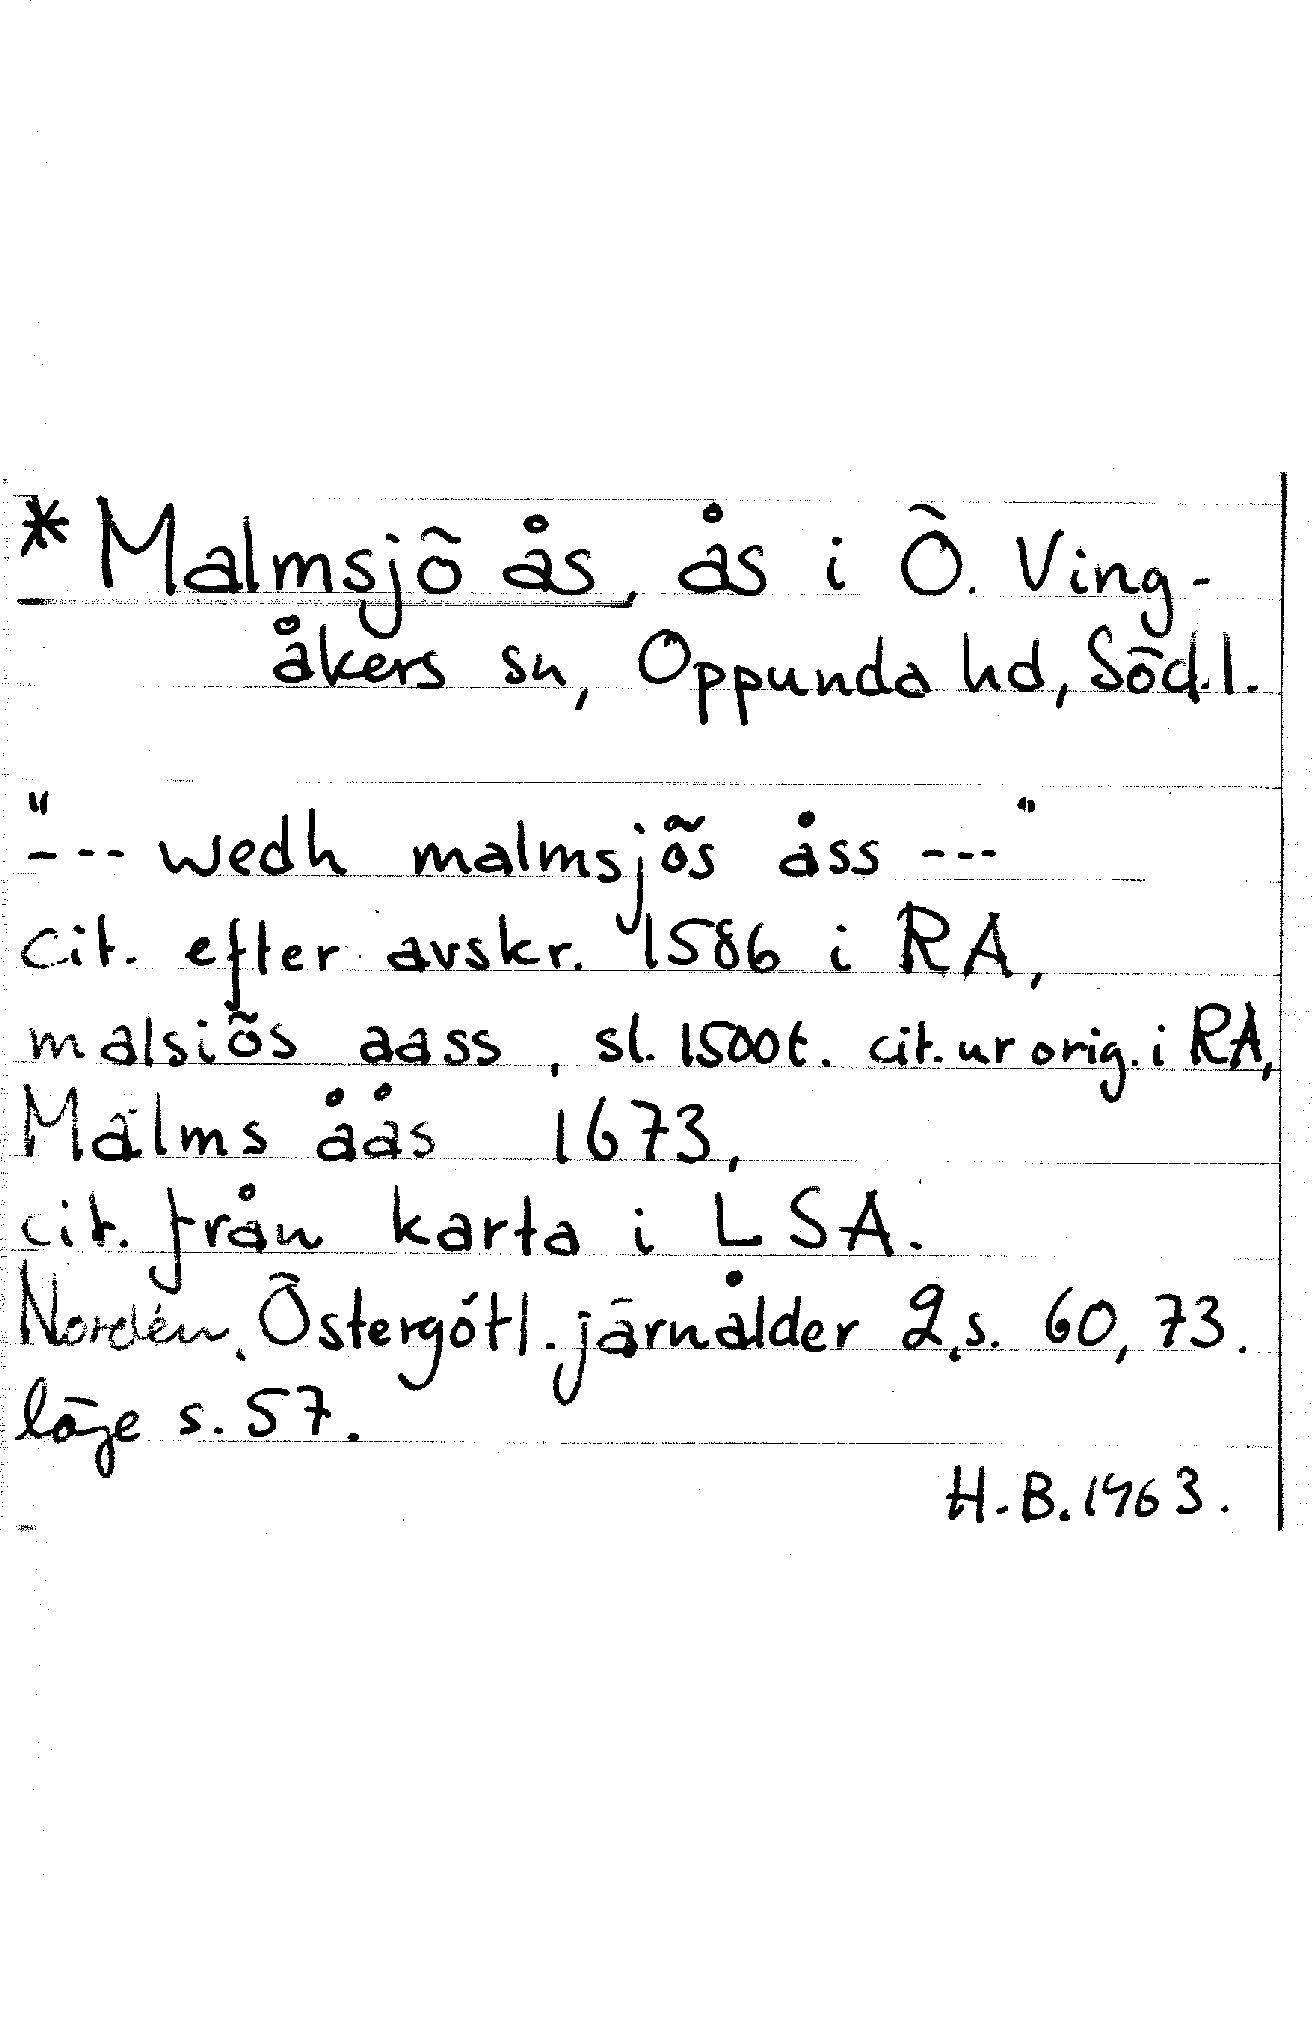 *Malmsjö ås, ås i Ö. Ving-
åkers sn, Oppunda hd, Söd.l.
"--- wedh malmsjös åss ---"
cit. efter avskr. 1586 i RA,
malsiös aass, sl. 1500t. cit. ur orig. i RA,
Mälms åås 1673,
cit. från karta i LSA.
Nordén, Östergötl. järnålder 2, s. 60, 73.
läge s. 57.
H.B. 1963.